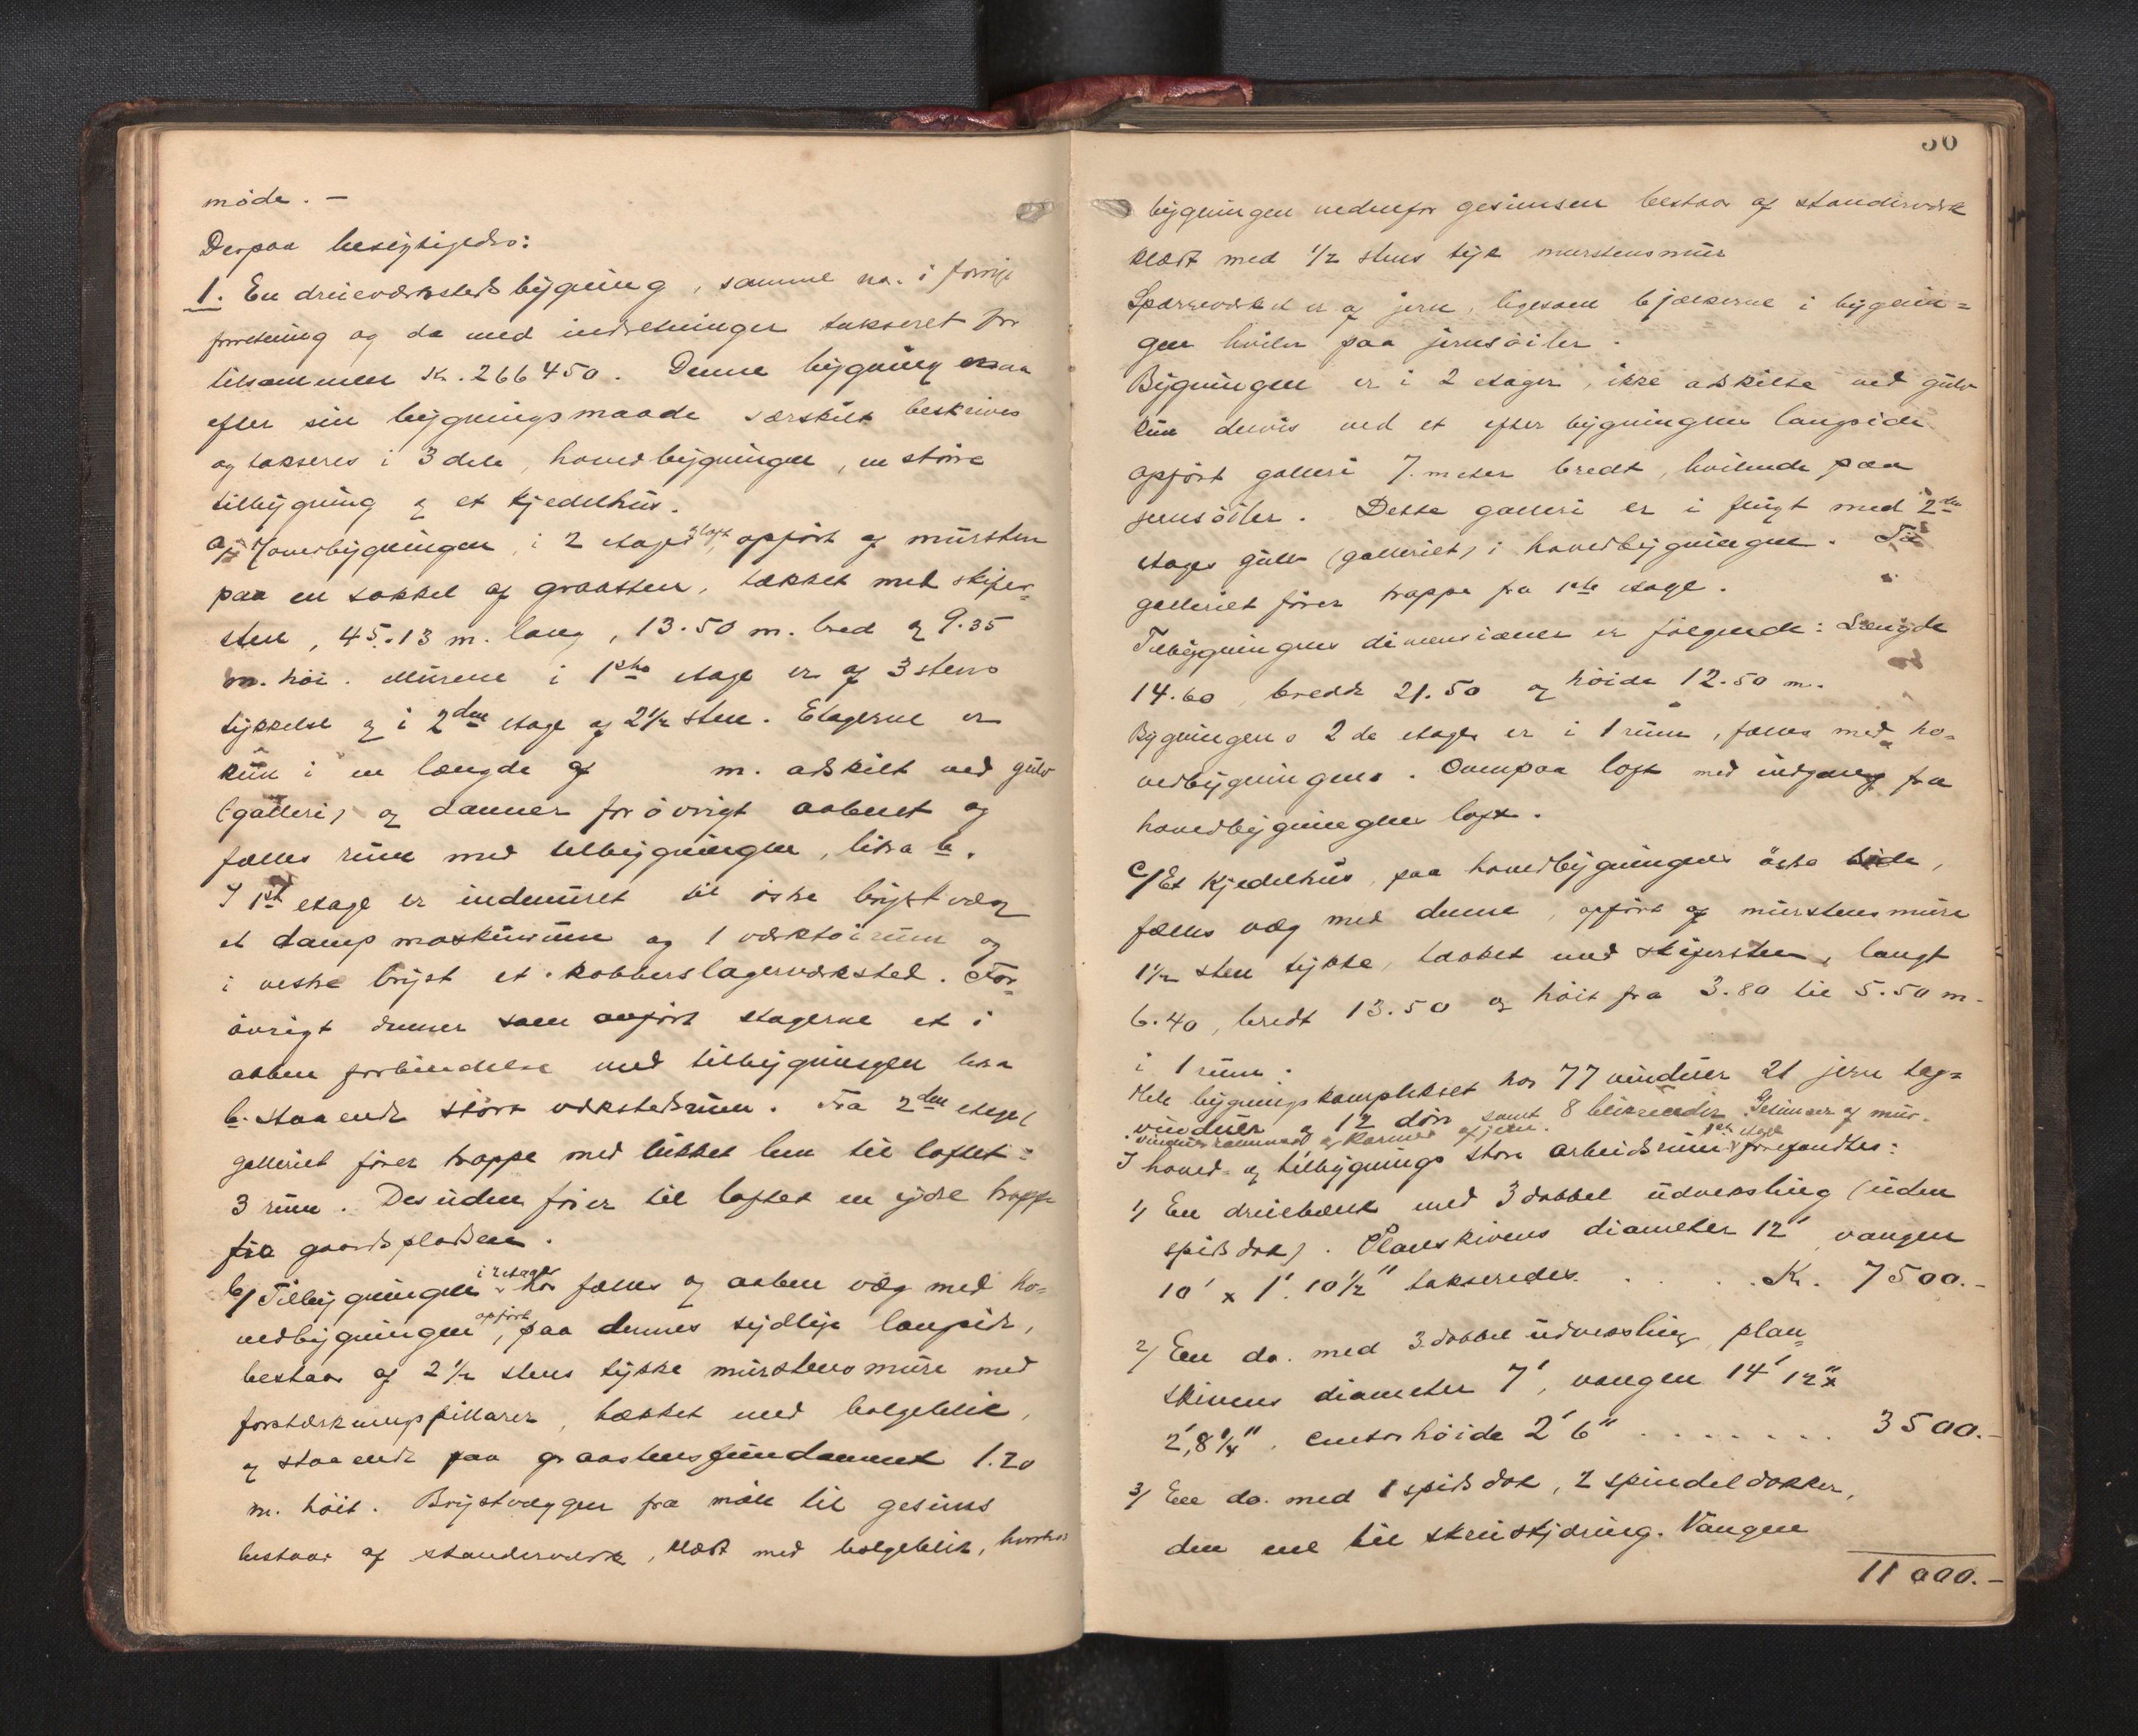 møde. –
Derpaa besigtigedes:
1. En dreieværkstedsbygning, samme no. i forrige
forretning og da med indretninger takseret for
tilsammen Kr. 266450. Denne bygning maa
efter sin bygningsmaade særskilt beskrives
og takseres i 3 dele, hovedbygningen, en større
tilbygning og et kjedelhus.
a/ Hovedbygningen, i 2 etager & loft, opført af mursten
paa en sokkel af graasten, tækket med skifer-
sten, 45.13 m. lang, 13.50 m. bred og 9.35
m. høi. Murene i 1ste etage er af 3 stens
tykkelse og i 2den etage af 2½ sten. Etagerne er
kun i en længde af m. adskilt ved gulv
(galleri) og danner forøvrigt aabent og
fælles rum med tilbygningen, litra b.
I 1ste etage er indmuret til østre brystvæg
et dampmaskinrum og 1 værktøirum og
i vestre bryst et kobberslagerværksted. For-
øvrigt danner som anført etagerne et i
aaben forbindelse med tilbygningen litra
b. staaende stort værkstedsrum. Fra 2den etages
galleriet fører trappe med lukket lem til loftet:
3 rum. Desuden fører til loftet en ydre trappe
fra gaardspladsen.
b/ Tilbygningen i 2 etager har fælles og aaben væg med ho-
vedbygningen, opført paa dennes sydlige langside,
bestaar af 2½ stens tykke murstens mure med
forstærkningspillarer, tækket med bølgeblik,
og staaende paa graastensfundament 1.20
m. høit. Brystvæggen fra møne til gesims
bestaar af standerværk, klædt med bølgeblik, hvorhos
30
bygningen nedenfor gesimsen bestaar af standerværk
klædt med ½ stens tyk murstensmur
Spærreværket er af jern, ligesom bjælkerne i bygnin-
gen hviler paa jernsøiler.
Bygningen er i 2 etager, ikke adskilte ved gulv
kun delvis ved et efter bygningens langside
opført galleri 7. meter bredt, hvilende paa
jernsøiler. Dette galleri er i flugt med 2den
etages gulv (galleriet) i hovedbygningen. Til
galleriet fører trappe fra 1ste etage.
Tilbygningens dimensioner er følgende: Længde
14.60, bredde 21.50 og høide 12.50 m.
Bygningens 2 de etager er i 1 rum, fælles med ho-
vedbygningens. Ovenpaa loft med indgang fra
hovedbygningens loft.
c/ Et kjedelhus, paa hovedbygningens østre side,
fælles væg med denne, opført af murstens mure
1½ sten tykke, tækket med skifersten, langt
6.40, bredt 13.50 og høit fra 3.80 til 5.50 m.
i 1 rum.
Hele bygningskomplekset har 77 vinduer 21 jern tag-
vinduer og 12 døre samt 8 blikrender. Gesimser af mur.
Vinduesrammer og karmer af jern.
I hoved- og tilbygnings store arbeidsrum i 1ste etage forefandtes:
1/ En dreiebænk med 3 dobbel udveksling (uden
spidsdok). Planskivens diameter 12', vangen
10' x 1'. 10½" takseredes . . . . Kr. 7500.–
2/ En do. med 3 dobbel udveksling, plan-
skivens diameter 7', vangen 14' 12" x
2', 8¼", centerhøide 2' 6" . . . . . . . 3500.–
3/ En do. med 1 spidsdok, 2 spindeldokker,
den ene til skruskjæring. Vangen
11000.–